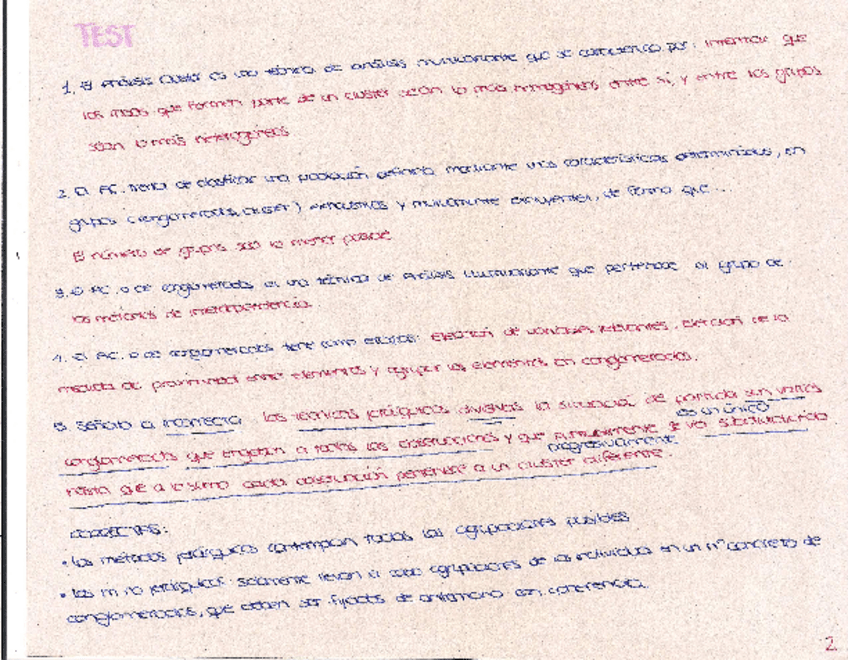 TEST
1. El Análisis Cluster es una técnica de análisis multivariante que se caracteriza por: intentar que
los casos que formen parte de un cluster sean lo más homogéneos entre sí, y entre los grupos
sean lo más heterogéneos
2. El AC. trata de clasificar una población definida mediante unas características determinadas, en
grupos (conglomerados, cluster) exhaustivos y mutuamente excluyentes, de forma que...
El número de grupos sea lo menor posible
3. El AC. o de conglomerados es una técnica de Análisis Multivariante que pertenece al grupo de:
los métodos de interdependencia.
4. El AC. o de conglomerados tiene como etapas: Elección de variables relevantes, elección de la
medida de proximidad entre elementos y agrupar los elementos en conglomerados.
5. Señala la incorrecta las técnicas jerárquicas divisivas la situación de partida son varios
es un único
conglomerados que engloban a todas las observaciones y que se va subdividiendo
progresivamente
hasta que a lo sumo cada observación pertenece a un cluster diferente.
CORRECTAS:
• Los métodos jerárquicos contemplan todas las agrupaciones posibles
• Los m. no jerárquicos solamente llevan a cabo agrupaciones de los individuos en un nº concreto de
conglomerados, que deben ser fijados de antemano con coherencia.
2